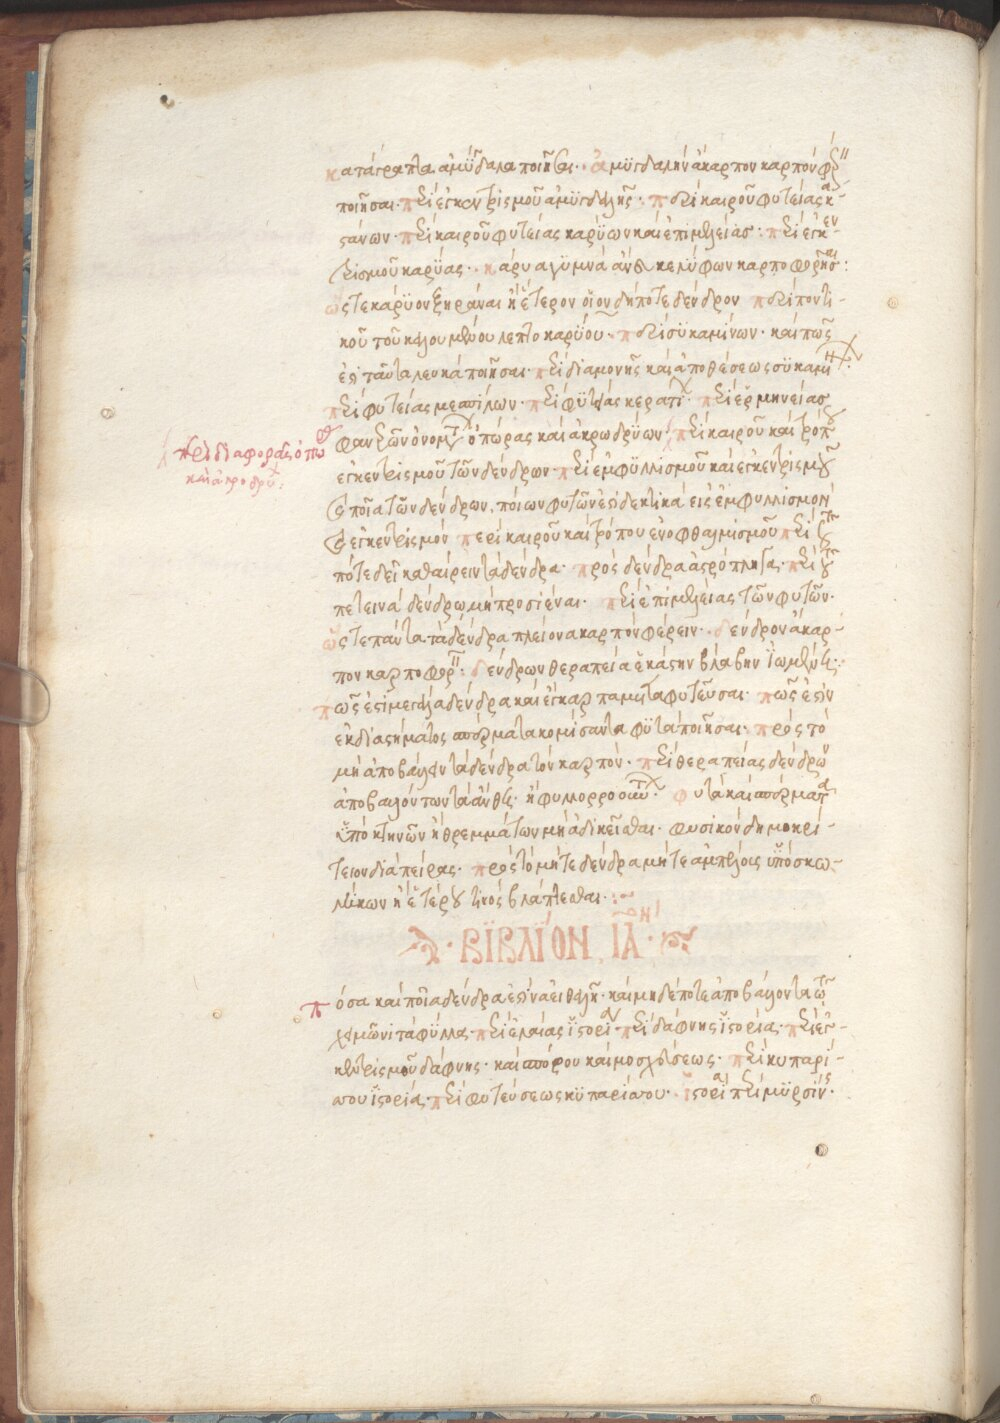 κατάγραπτα ἀμύγδαλα ποιῆσαι · ἀμυγδαλὴν ἄκαρπον καρπόν φέρ
ποιῆσαι · περὶ ἐγκεντρισμοῦ ἀμυγδαλῆς · περὶ καιροῦ φυτείας κα
στάνων · περὶ καιροῦ φυτείας καρύων καὶ ἐπιμελείας : περὶ ἐγκεν
τρισμοῦ καρύας · κάρυα γυμνὰ ἄνευ κελύφων καρποφορῆσαι :
ὥστε κάρυον ξηράναι ἢ ἕτερον οἱονδήποτε δένδρον περὶ ποντι
κοῦ τοῦ καλουμένου λεπτοκαρύου · περὶ συκαμίνων · καὶ πῶς
ἐστὶ ταῦτα λευκὰ ποιῆσαι · περὶ διαμονῆς καὶ ἀποθέσεως συκαμιν
περὶ φυτείας μεσπίλων · περὶ φυτείας κερατί · περὶ ἑρμηνείας
ὀπώρας καὶ ἀκροδρύων · περὶ καιροῦ καὶ τρόπου
περὶ διαφορᾶς ὀπω
καὶ ἀκροδρύ :
ἐγκεντρισμοῦ τῶν δένδρων · περὶ ἐμφυλλισμοῦ καὶ ἐγκεντρισμοῦ
ποῖα τῶν δένδρων, ποίων φυτῶν ἐπιδεκτικὰ εἰς ἐμφυλλισμὸν
ἐγκεντρισμόν περὶ καιροῦ καὶ τρόπου ἐνοφθαλμισμοῦ περὶ τοῦ
πότε δεῖ καθαίρειν τὰ δένδρα · πρὸς δένδρα ἀστρόπληγα · περὶ τοῦ
πετεινὰ δένδρω μὴ προσιέναι · περὶ ἐπιμελείας τῶν φυτῶν ·
ὥστε πάντα τὰ δένδρα πλείονα καρπὸν φέρειν · δένδρον ἄκαρ
πον καρποφορ : δένδρων θεραπεία ἑκάστην βλάβην ἰωμένη :
πῶς ἐστὶ μεγάλα δένδρα καὶ ἔγκαρπα μεταφυτεῦσαι · πῶς ἐστὶν
ἐκ διαστήματος σπέρματα κομίσαντα φυτὰ ποιῆσαι · πρὸς τὸ
μὴ ἀποβάλλειν τὰ δένδρα τὸν καρπόν · περὶ θεραπείας δένδρων
ἀποβαλόντων τὰ ἄνθη · ἢ φυλλορροούντων · φυτὰ καὶ σπέρματα
ὑπὸ κτηνῶν ἢ θρεμμάτων μὴ ἀδικεῖσθαι · φυσικὸν δημοκρί
τειον διὰ πείρας · πρὸς τὸ μήτε δένδρα μήτε ἀμπέλοις ὑπὸ σκω
λήκων ἢ ἑτέρου τινὸς βλάπτεσθαι :
· ΒΙΒΛΙΟΝ ΙΑ ·
πόσα καὶ ποῖα δένδρα ἐστὶν ἀειθαλῆ · καὶ μηδέποτε ἀποβάλλοντα τῷ
χειμῶνι τὰ φύλλα · περὶ ἐλαίας ἱστορία · περὶ δάφνης ἱστορία · περὶ ἐγ
κεντρισμοῦ δάφνης · καὶ σπόρου καὶ μοσχεύσεως · περὶ κυπαρί
σσου ἱστορία · περὶ φυτεύσεως κυπαρίσσου · ἱστορία περὶ μυρσίνης ·